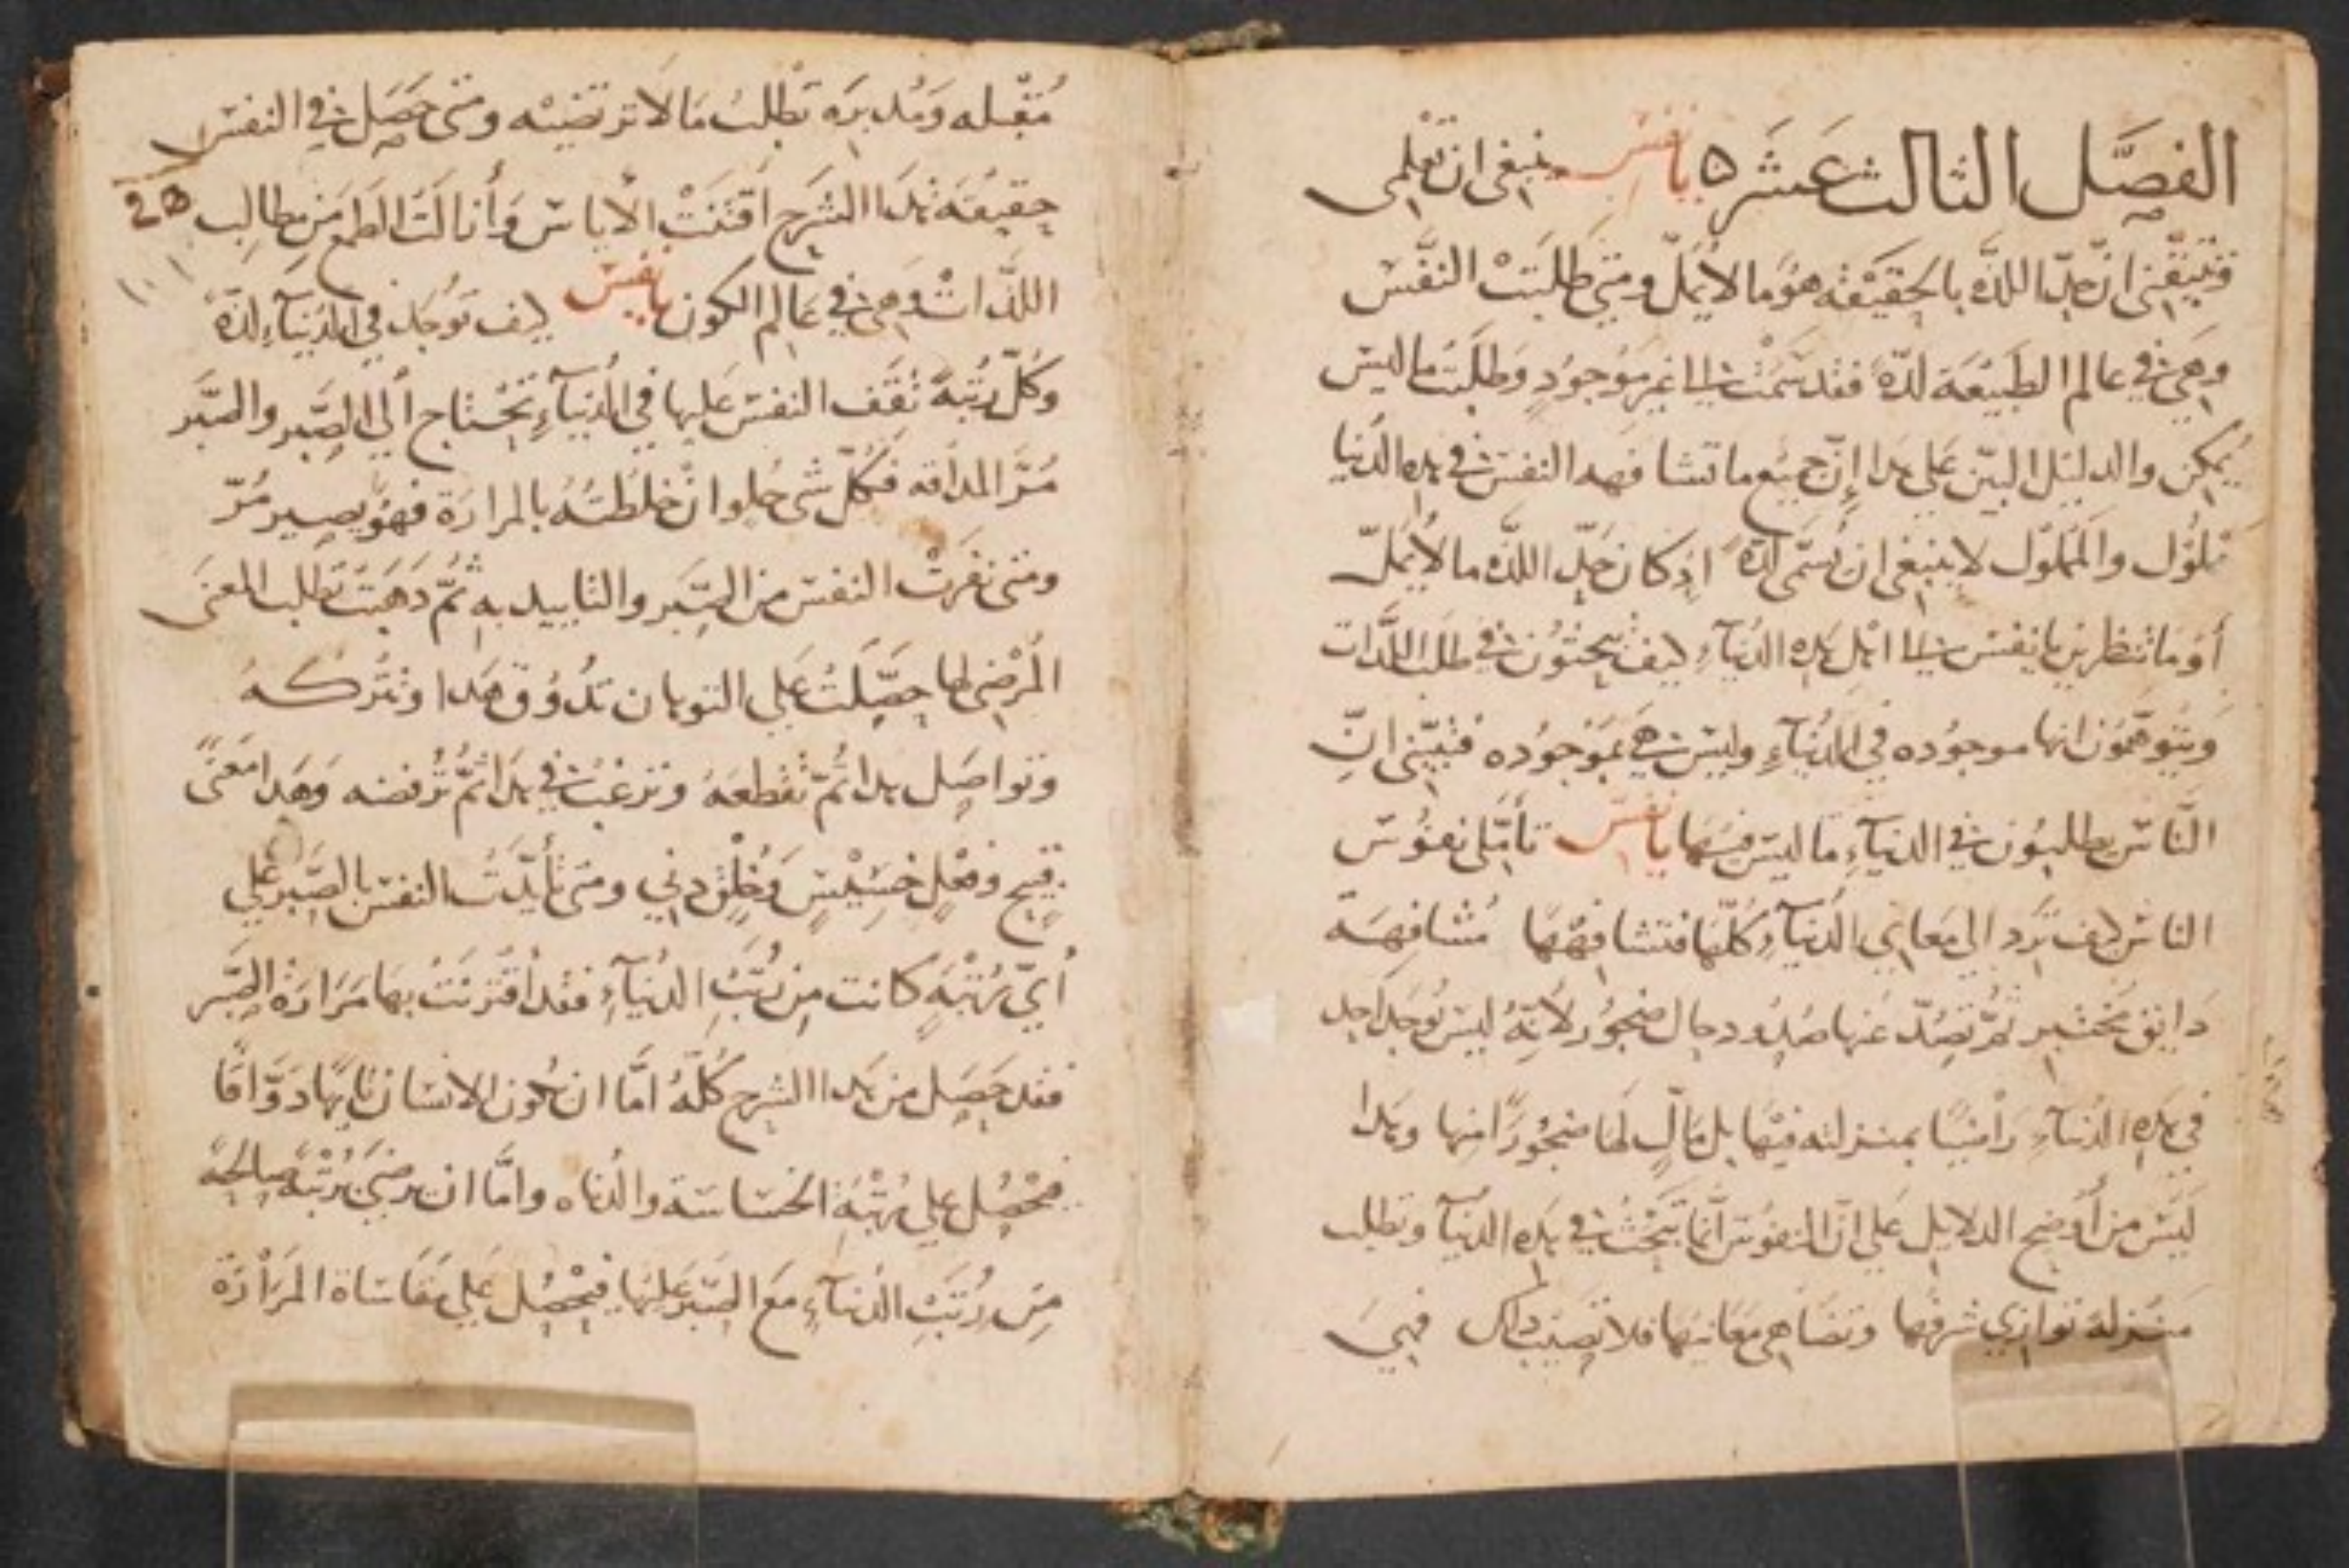 الفصل الثالث عشر ه يا نفس ينبغي ان تعلمي
فتيقني انّ حدّ اللذه بالحقيقه هو ما لا يُملّ ومتي طلبت النفس
وهي في عالم الطبيعة لذّة فقد سمت الي غير موجودٍ وطلبت ما ليس
يُمكن والدليل البيّن علي هدا إنّ جميع ما تشاهده النفس في هده الدُنيا
مملوُل والمملوُل لا ينبغي ان يُسمّي لذّة ادكان حَدّ اللذّه ما لا يُملّ
أوَما تنظرين يا نفس الي اهل هده الدُنيآءِ كيف يبحثوُن في طلب اللذّات
وَيتوهّمُون انها موجوُده في الدُنيآءِ وليس هي بموجوُده فتبيّني انّ
النّاس يطلبوُن في الدنيآءِ ما ليس فيها يا نفس تأمّلي نفوُس
الناس كيف تَرد الي معاني الدُنيآءِ كلّها فتشافهُها مُشافهة
دايق مختبر ثمّ تصُدّ عنها صدُود حال ضجوُر لأنّهُ ليس يُوجد احد
في هده الدُنيآءِ رَاضيًا بمنزلته فيها بل مَالٍّ لها ضجُورًا منها وهدا
ليس من أوضح الدلايل علي انّ النفوُس انّما تبحثُ في هده الدنيآ وتطلب
منزلة توازي شرفها وتضاهي معانيها فلا تصيب داك فهي
مُقبله وَمُدبرَه تطلبُ مَا لا ترتضيه ومتي حصل في النفس
20
حقيقة هدا الشرح اقتنت الأياس وَأزالت الطمع من مطالب
اللذّات وهي في عالم الكون يا نفس كيف توُجد في الدُنيآءِ لذّة
وكلّ رُتبةً تقف النفس عليها في الدُنيآءِ تحتاج ألي الصَبر والصَبر
مُرّ المداقه فكُلّ شي حلو ان خلطتهُ بالمرارة فهو يصير مُرّ
ومتي نفرَت النفس من الصَبر والتاييد به ثمّ دهبَت تطلب المعنَي
المُرضي لها حصّلت علي التوهان تدُوُق هدا وتتُركهُ
وتواصل هدا ثُمّ تقطعهُ وترغبُ في هدا ثُمّ تُرفضه وَهدا معنًي
قبيح وفعلٍ خسيسٍ وَخُلقٍ دني ومتي تأيّدتُ النفس بالصبر علي
أيّ رُتبةٍ كانت من رُتبِ الدُنيآءِ فقد أقترنتُ بها مَرارةُ الصَبر
فقد حصل من هدا الشرح كُلّهُ امّا ان يكُون الانسان تايهًا دوّاقًا
فيحصُل علي رُتبةُ الخساسة والدُناه وامّا ان يرضيَ برُتبةٍ صالحةً
من رُتَبِ الدُنيآءِ مع الصَبر عليها فيحصُل علي مقاساة المرارة